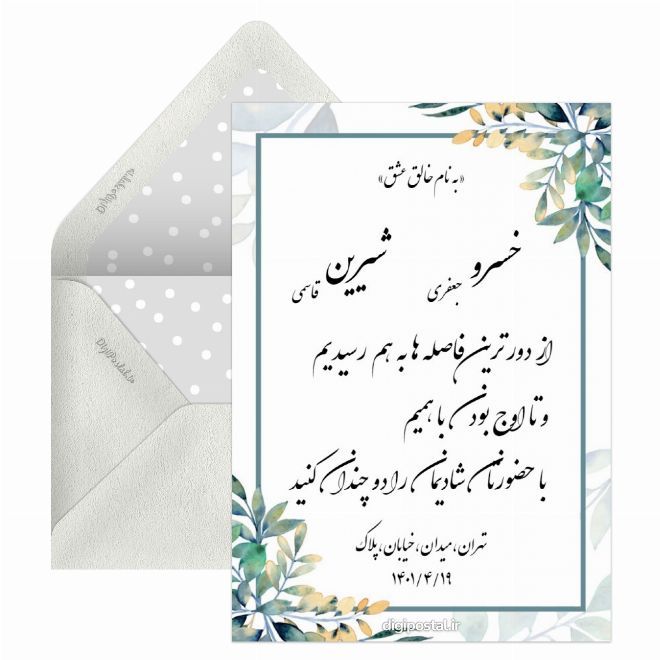 «به نام خالق عشق»
خسرو شیرین
جعفری قاسمی
از دورترین فاصله ها به هم رسیدیم
و تا اوج بودن با همیم
با حضورتان شادیمان را دو چندان کنید
تهران، میدان، خیابان، پلاک
۱۴۰۱/۴/۱۹
digipostal.ir
DigiPostal.ir
DigiPostal.ir